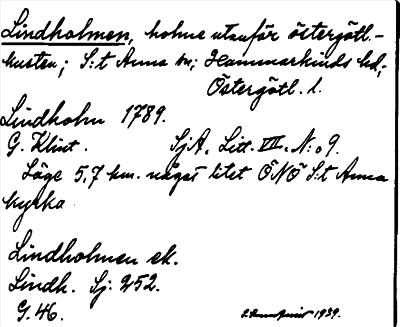 Lindholmen, holme utanför östergötl.-
kusten; S:t Anna sn; Hammarkinds hd;
Östergötl. l.
Lindholm 1789.
G. Klint. SjA. Litt. VII. N:o 9.
Läge 5,7 km. något litet ÖNÖ S:t Anna
kyrka.
Lindholmen ek.
Lindh. Sj: 252.
G. 46. 1939.